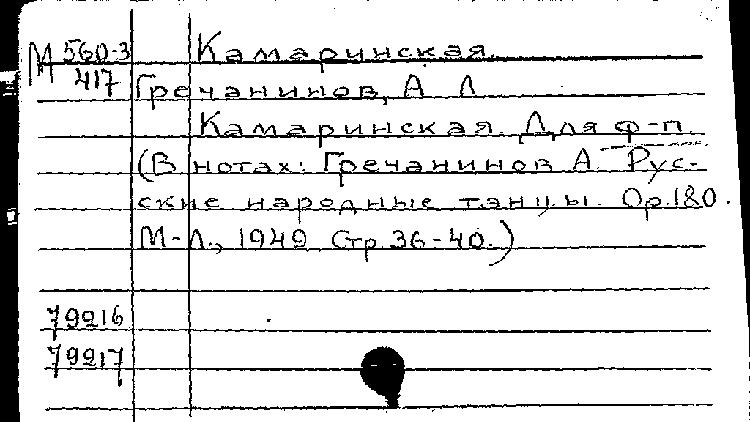 М 560-3 Камаринская.
417 Гречанинов, А Л
Камаринская. Для ф-п.
(В нотах: Гречанинов А. Рус-
ские народные танцы. Ор.180.
М-Л., 1949 Стр. 36-40.)
79216
79217